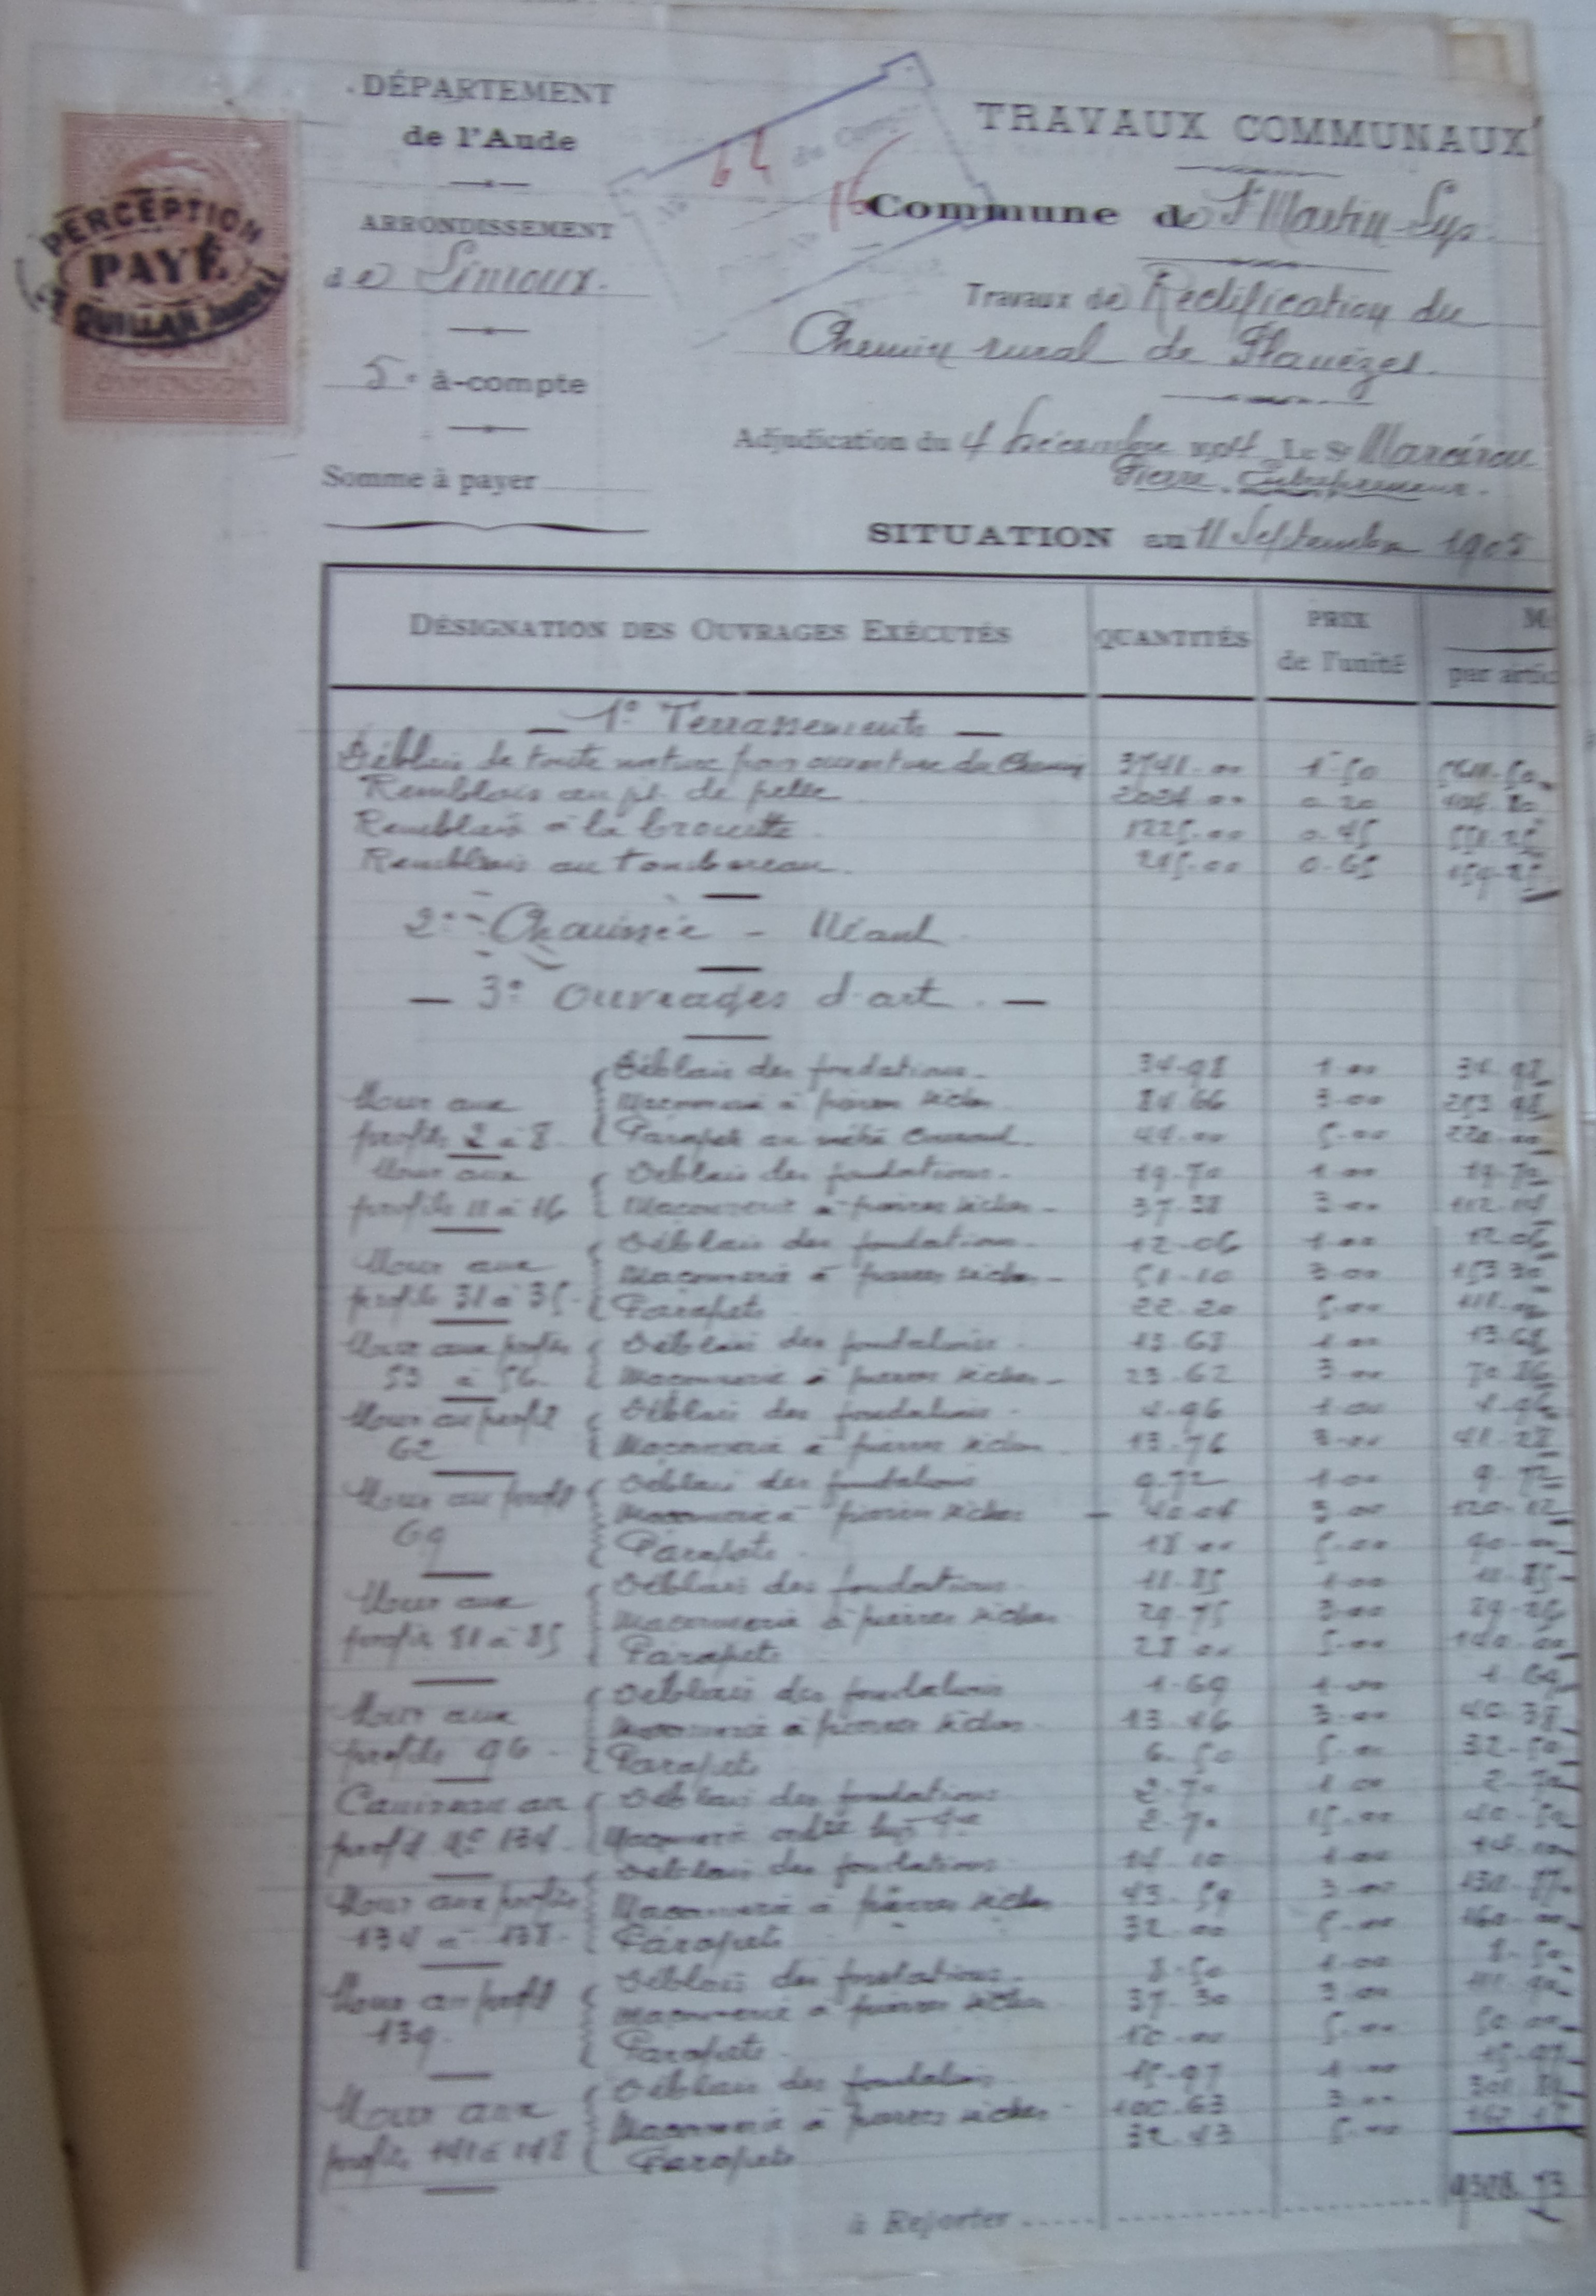 DÉPARTEMENT
de l'Aude
ARRONDISSEMENT
de Limoux.
5e à-compte
Somme à payer
PERCEPTION
PAYÉ
QUILLAN
DIMENSION
64
16
TRAVAUX COMMUNAUX
Commune de St Martin-Lys.
Travaux de Rectification du
Chemin rural de
Adjudication du 4 Décembre 1904 Le Sr
Pierre, Entrepreneur.
SITUATION au 11 Septembre 1905
DÉSIGNATION DES OUVRAGES EXÉCUTÉS QUANTITÉS PRIX de l'unité M
par artic
1° Terrassements
Déblais de toute nature pour ouverture du Chemin 3741.00 1.50 5611.50
Remblais au jet de pelle 2024.00 0.20 404.80
Remblais à la brouette 1225.00 0.45 551.25
Remblais au tombereau. 245.00 0.65 159.25
2° Chaussée - Néant
3° Ouvrages d'art.
Murs aux profils 2 à 8
Déblais des fondations 34.98 1.00 34.98
Maçonnerie à pierres sèches 84.66 3.00 253.98
Parapets au mètre courant. 44.00 5.00 220.00
Murs aux profils 11 à 16
Déblais des fondations 19.70 1.00 19.70
Maçonnerie à pierres sèches 37.38 3.00 112.14
Murs aux profils 31 à 35
Déblais des fondations 12.06 1.00 12.06
Maçonnerie à pierres sèches 51.10 3.00 153.30
Parapets 22.20 5.00 111.00
Murs aux profils 53 à 56
Déblais des fondations 13.68 1.00 13.68
Maçonnerie à pierres sèches 23.62 3.00 70.86
Murs au profil 62
Déblais des fondations 4.96 1.00 4.96
Maçonnerie à pierres sèches 13.76 3.00 41.28
Murs au profil 69
Déblais des fondations 9.72 1.00 9.72
Maçonnerie à pierres sèches 40.04 3.00 120.12
Parapets 18.00 5.00 90.00
Murs aux profils 81 à 85
Déblais des fondations 11.85 1.00 11.85
Maçonnerie à pierres sèches 29.75 3.00 89.25
Parapets 28.00 5.00 140.00
Murs aux profils 96
Déblais des fondations 1.69 1.00 1.69
Maçonnerie à pierres sèches 13.46 3.00 40.38
Parapets 6.50 5.00 32.50
profil N° 134
Déblais des fondations 2.70 1.00 2.70
Maçonnerie 2.70 15.00 40.50
Murs aux profils 134 à 138
Déblais des fondations 14.10 1.00 14.10
Maçonnerie à pierres sèches 43.59 3.00 130.77
Parapets 32.00 5.00 160.00
Murs au profil 139
Déblais des fondations 8.50 1.00 8.50
Maçonnerie à pierres sèches 37.30 3.00 111.90
Parapets 10.00 5.00 50.00
Murs aux profils 141 à 148
Déblais des fondations 15.97 1.00 15.97
Maçonnerie à pierres sèches 100.63 3.00 301.89
Parapets 32.43 5.00 162.15
à Reporter 9308.73